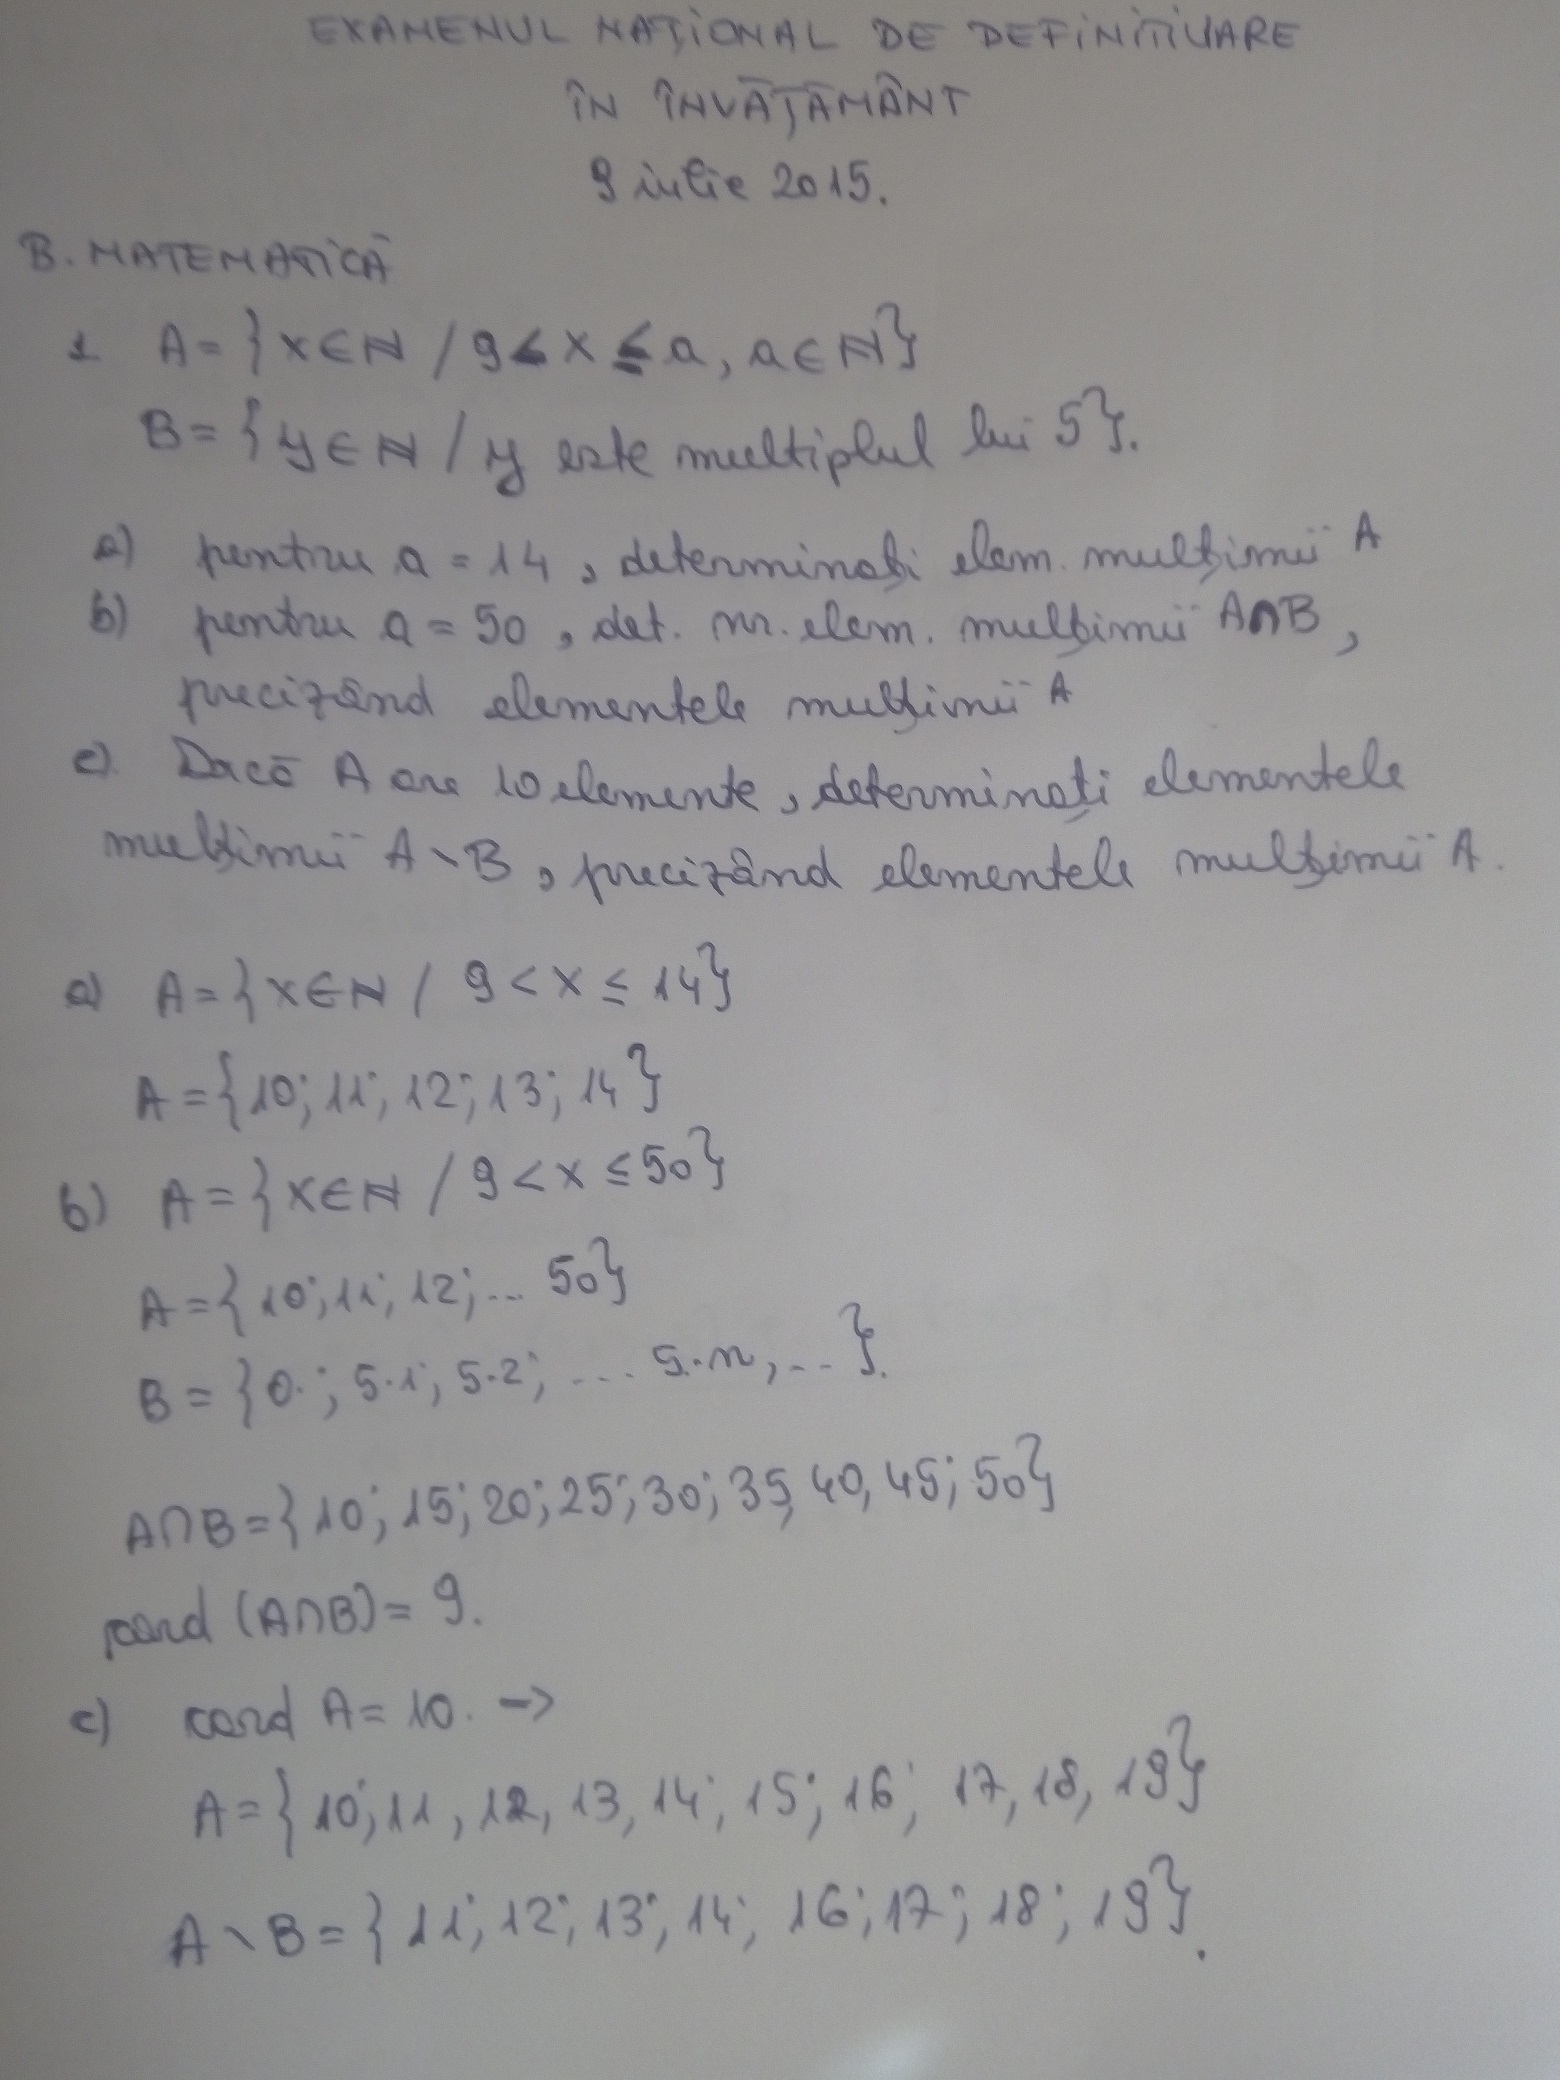 EXAMENUL NAȚIONAL DE DEFINITIVARE
ÎN ÎNVĂȚĂMÂNT
9 iulie 2015.
B. MATEMATICĂ
1. A = {x∈N / 9 < x ≤ a, a∈N}
B = {y∈N / y este multiplul lui 5}.
a) pentru a = 14, determinați elem. mulțimii A
b) pentru a = 50, det. nr. elem. mulțimii A∩B,
precizând elementele mulțimii A
c). Dacă A are 10 elemente, determinați elementele
mulțimii A \ B, precizând elementele mulțimii A.
a) A = {x∈N / 9 < x ≤ 14}
A = {10; 11; 12; 13; 14}
b) A = {x∈N / 9 < x ≤ 50}
A = {10; 11; 12; ... 50}
B = {0.; 5·1; 5·2; .... 5.·n, ...}.
A∩B = {10; 15; 20; 25; 30; 35, 40, 45; 50}
card (A∩B) = 9.
c) card A = 10. →
A = {10; 11, 12, 13, 14; 15; 16; 17, 18, 19}
A \ B = {11; 12; 13; 14; 16; 17; 18; 19}.